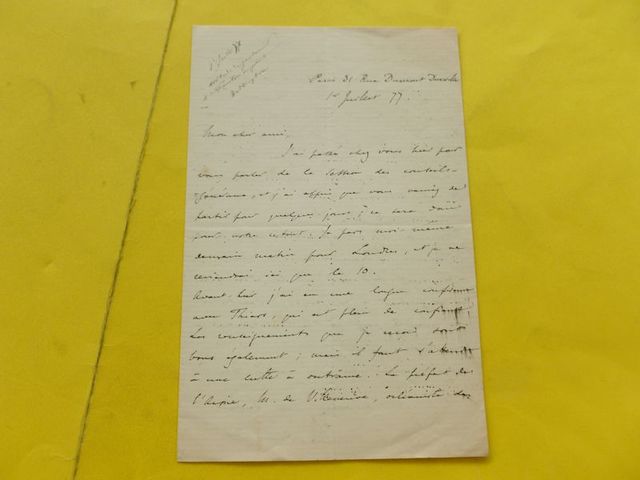 Paris 31 Rue Dumont Durville
1er Juillet 77.
Mon cher ami,
J'ai passé chez vous hier pour
vous parler de la session des conseils
généraux, et j'ai appris que vous veniez de
partir pour quelques jours; ce sera donc
pour votre retour. Je pars moi-même
demain matin pour Londres, et je ne
reviendrai ici que le 10.
Avant hier j'ai eu une longue
avec Thiers, qui est plein de confiance.
Les renseignements que je reçois sont
bons également; mais il faut s'attendre
à une lutte à outrance. Le préfet de
l'Aisne, M. de